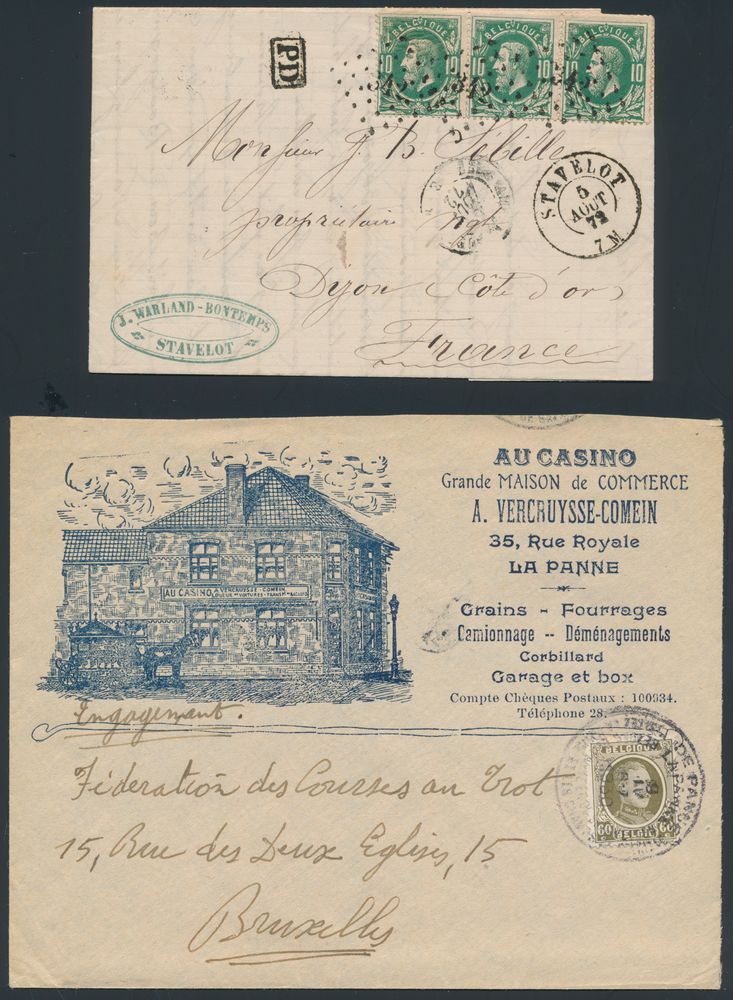 PD
BELGIQUE BELGIQUE BELGIQUE
10 10 10 10 10 10
342 342 342
Monsieur J. B. Sébille
propriétaire ngt
Dijon (Côte d'or)
France
STAVELOT
5
AOUT
72
7 M
J. WARLAND-BONTEMPS
STAVELOT
AU CASINO
Grande MAISON de COMMERCE
A. VERCRUYSSE-COMEIN
35, Rue Royale
LA PANNE
Grains - Fourrages
Camionnage -- Déménagements
Corbillard
Garage et box
Compte Chèques Postaux : 100934.
Téléphone 28.
AU CASINO A VERCRUYSSE - COMEIN
LOUEUR DE VOITURES
Engagement.
Fédération des Courses au Trot
15, Rue des Deux Eglises, 15
Bruxelles
DE PANNE
LA PANNE
BELGIQUE
60 60
BELGIE